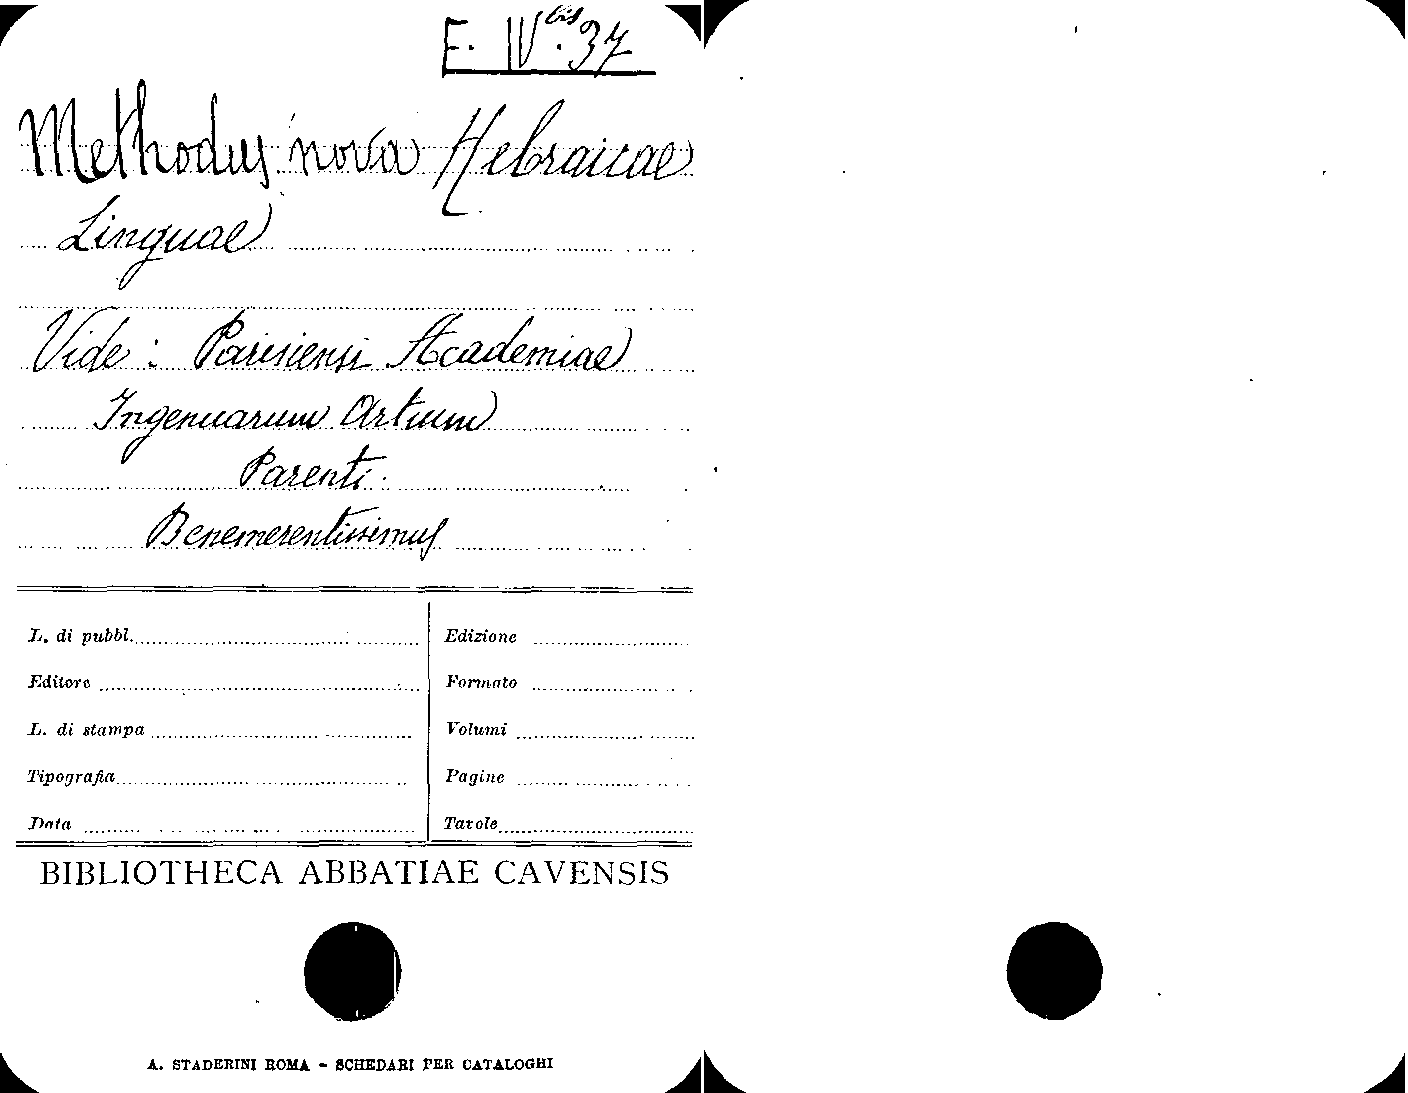 F. IV bis. 37
Methodus nova Hebraicae
Linguae
Vide: Parisiensi Academiae
Ingenuarum Artium
Parenti
Benemerentissimus
L. di pubbl.
Editore
L. di stampa
Tipografia
Data
Edizione
Formato
Volumi
Pagine
Tavole
BIBLIOTHECA ABBATIAE CAVENSIS
A. STADERINI ROMA - SCHEDARI PER CATALOGHI